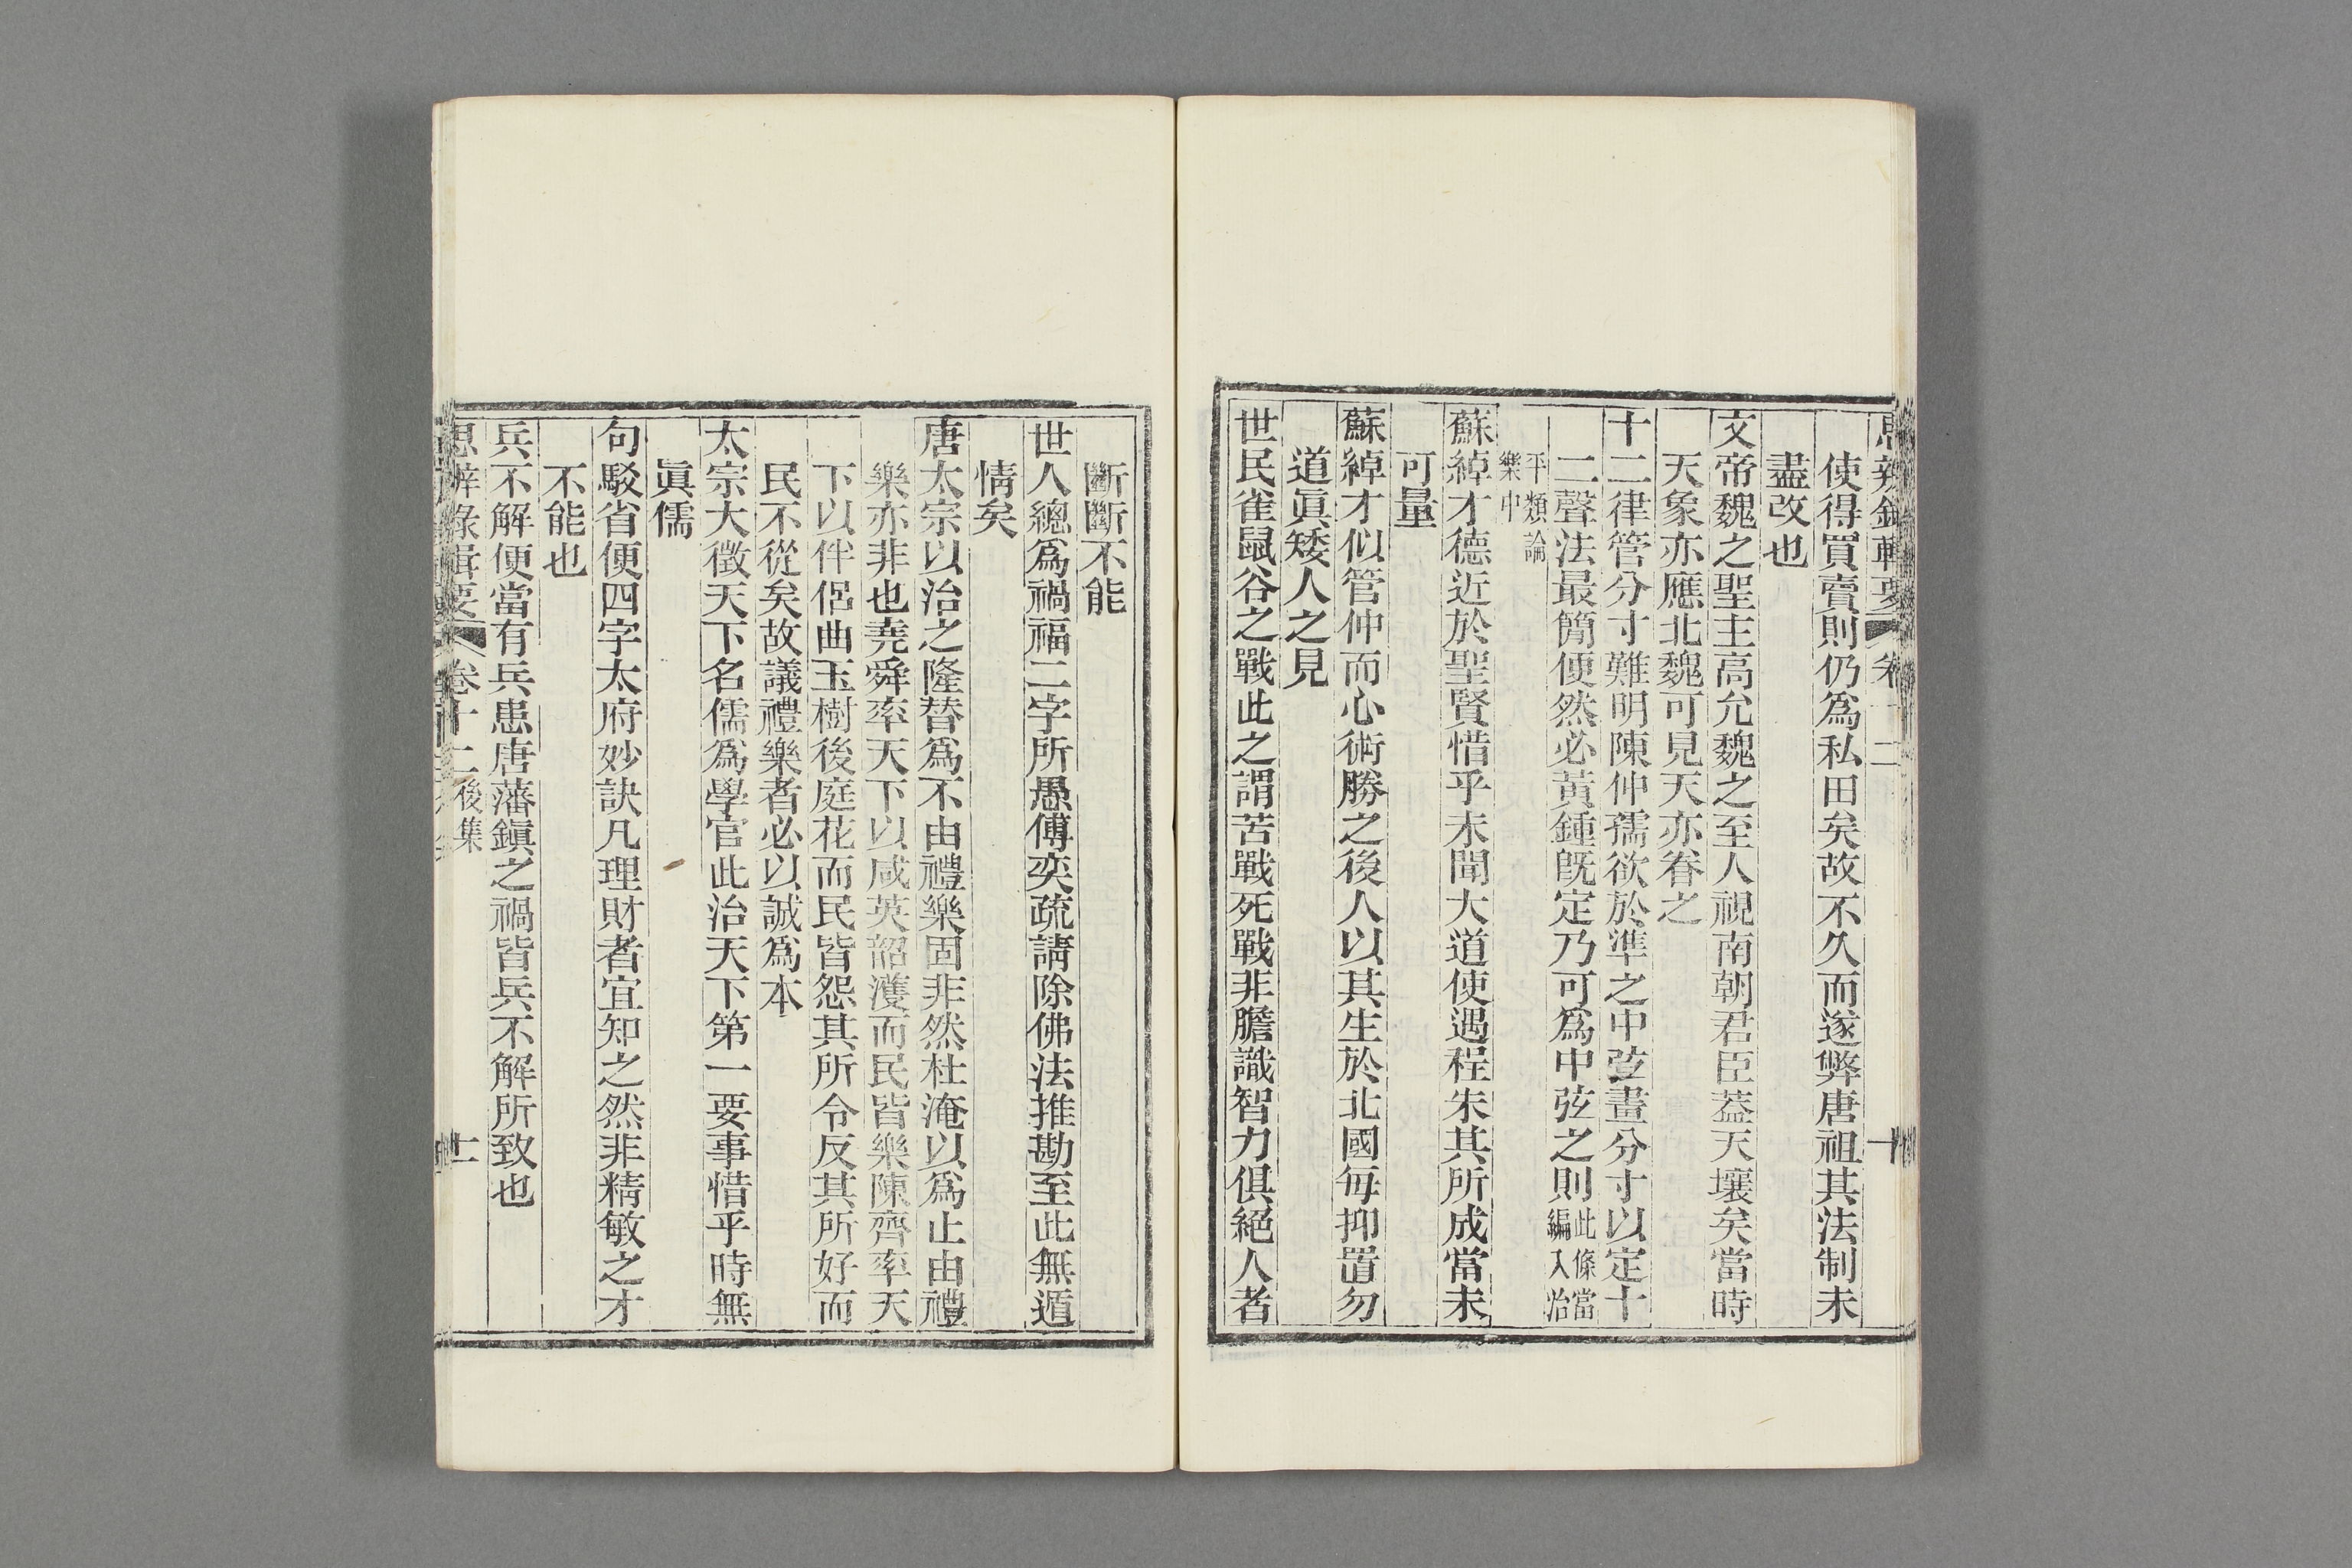 使得買賣則仍爲私田矣故不久而遂弊唐祖其法制未
盡改也
文帝魏之聖主高允魏之至人視南朝君臣葢天壤矣當時
天象亦應北魏可見天亦眷之
十二律管分寸難明陳仲孺欲於準之中弦畫分寸以定十
二聲法最簡便然必黃鍾旣定乃可爲中弦之則此條當編入治
平類論樂中
蘇綽才德近於聖賢惜乎未聞大道使遇程朱其所成當未
可量
蘇綽才似管仲而心術勝之後人以其生於北國每抑置勿
道眞矮人之見
世民雀鼠谷之戰此之謂苦戰死戰非膽識智力俱絕人者
斷斷不能
世人總爲禍福二字所愚傅奕疏請除佛法推勘至此無遁
情矣
唐太宗以治之隆替爲不由禮樂固非然杜淹以爲止由禮
樂亦非也堯舜率天下以咸英韶濩而民皆樂陳齊率天
下以伴侶曲玉樹後庭花而民皆怨其所令反其所好而
民不從矣故議禮樂者必以誠爲本
太宗大徵天下名儒爲學官此治天下第一要事惜乎時無
眞儒
句駁省便四字太府妙訣凡理財者宜知之然非精敏之才
不能也
兵不解便當有兵患唐藩鎭之禍皆兵不解所致也
思辨錄輯要 卷十二 後集